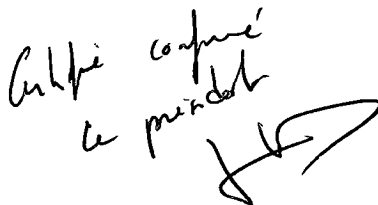 Certifié conforme
Le président